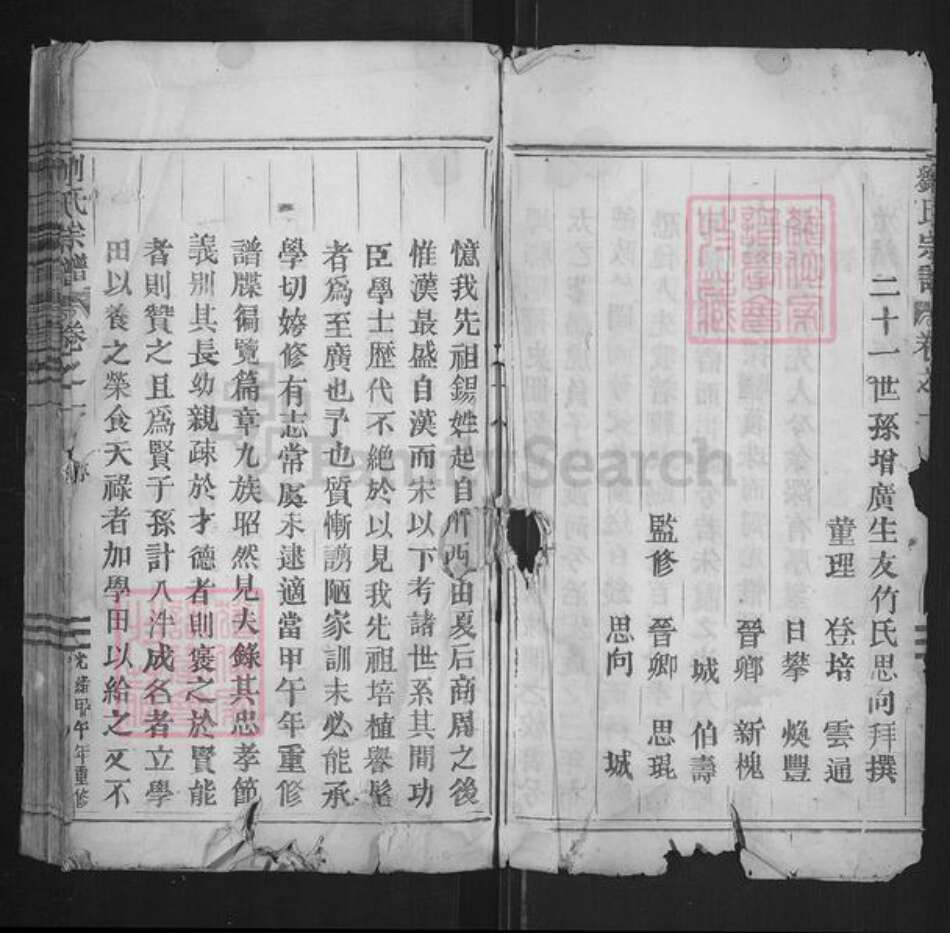 劉氏宗譜 卷之一
二十一世孫增廣生友竹氏思向拜撰
董理 登培 雲通
日攀 煥豐
晉鄉 新槐
城 伯壽
監修 晉卿 思琨
思向 城
憶我先祖錫姓起自 由夏后商周之後
惟漢最盛自漢而宋以下考諸世系其間功
臣學士歷代不絕於以見我先祖培植譽髦
者爲至廣也予也質慚譾陋家訓未必能承
學切嫮修有志常厪未逮適當甲午年重修
譜牒徧覽篇章九族昭然見夫錄其忠孝節
義別其長幼親疎於才德者則褒之於賢能
者則贊之且爲賢子孫計入泮成名者立學
田以養之榮食天祿者加學田以給之又不
劉氏宗譜 卷之一 序
光緒甲午年重修
FamilySearch